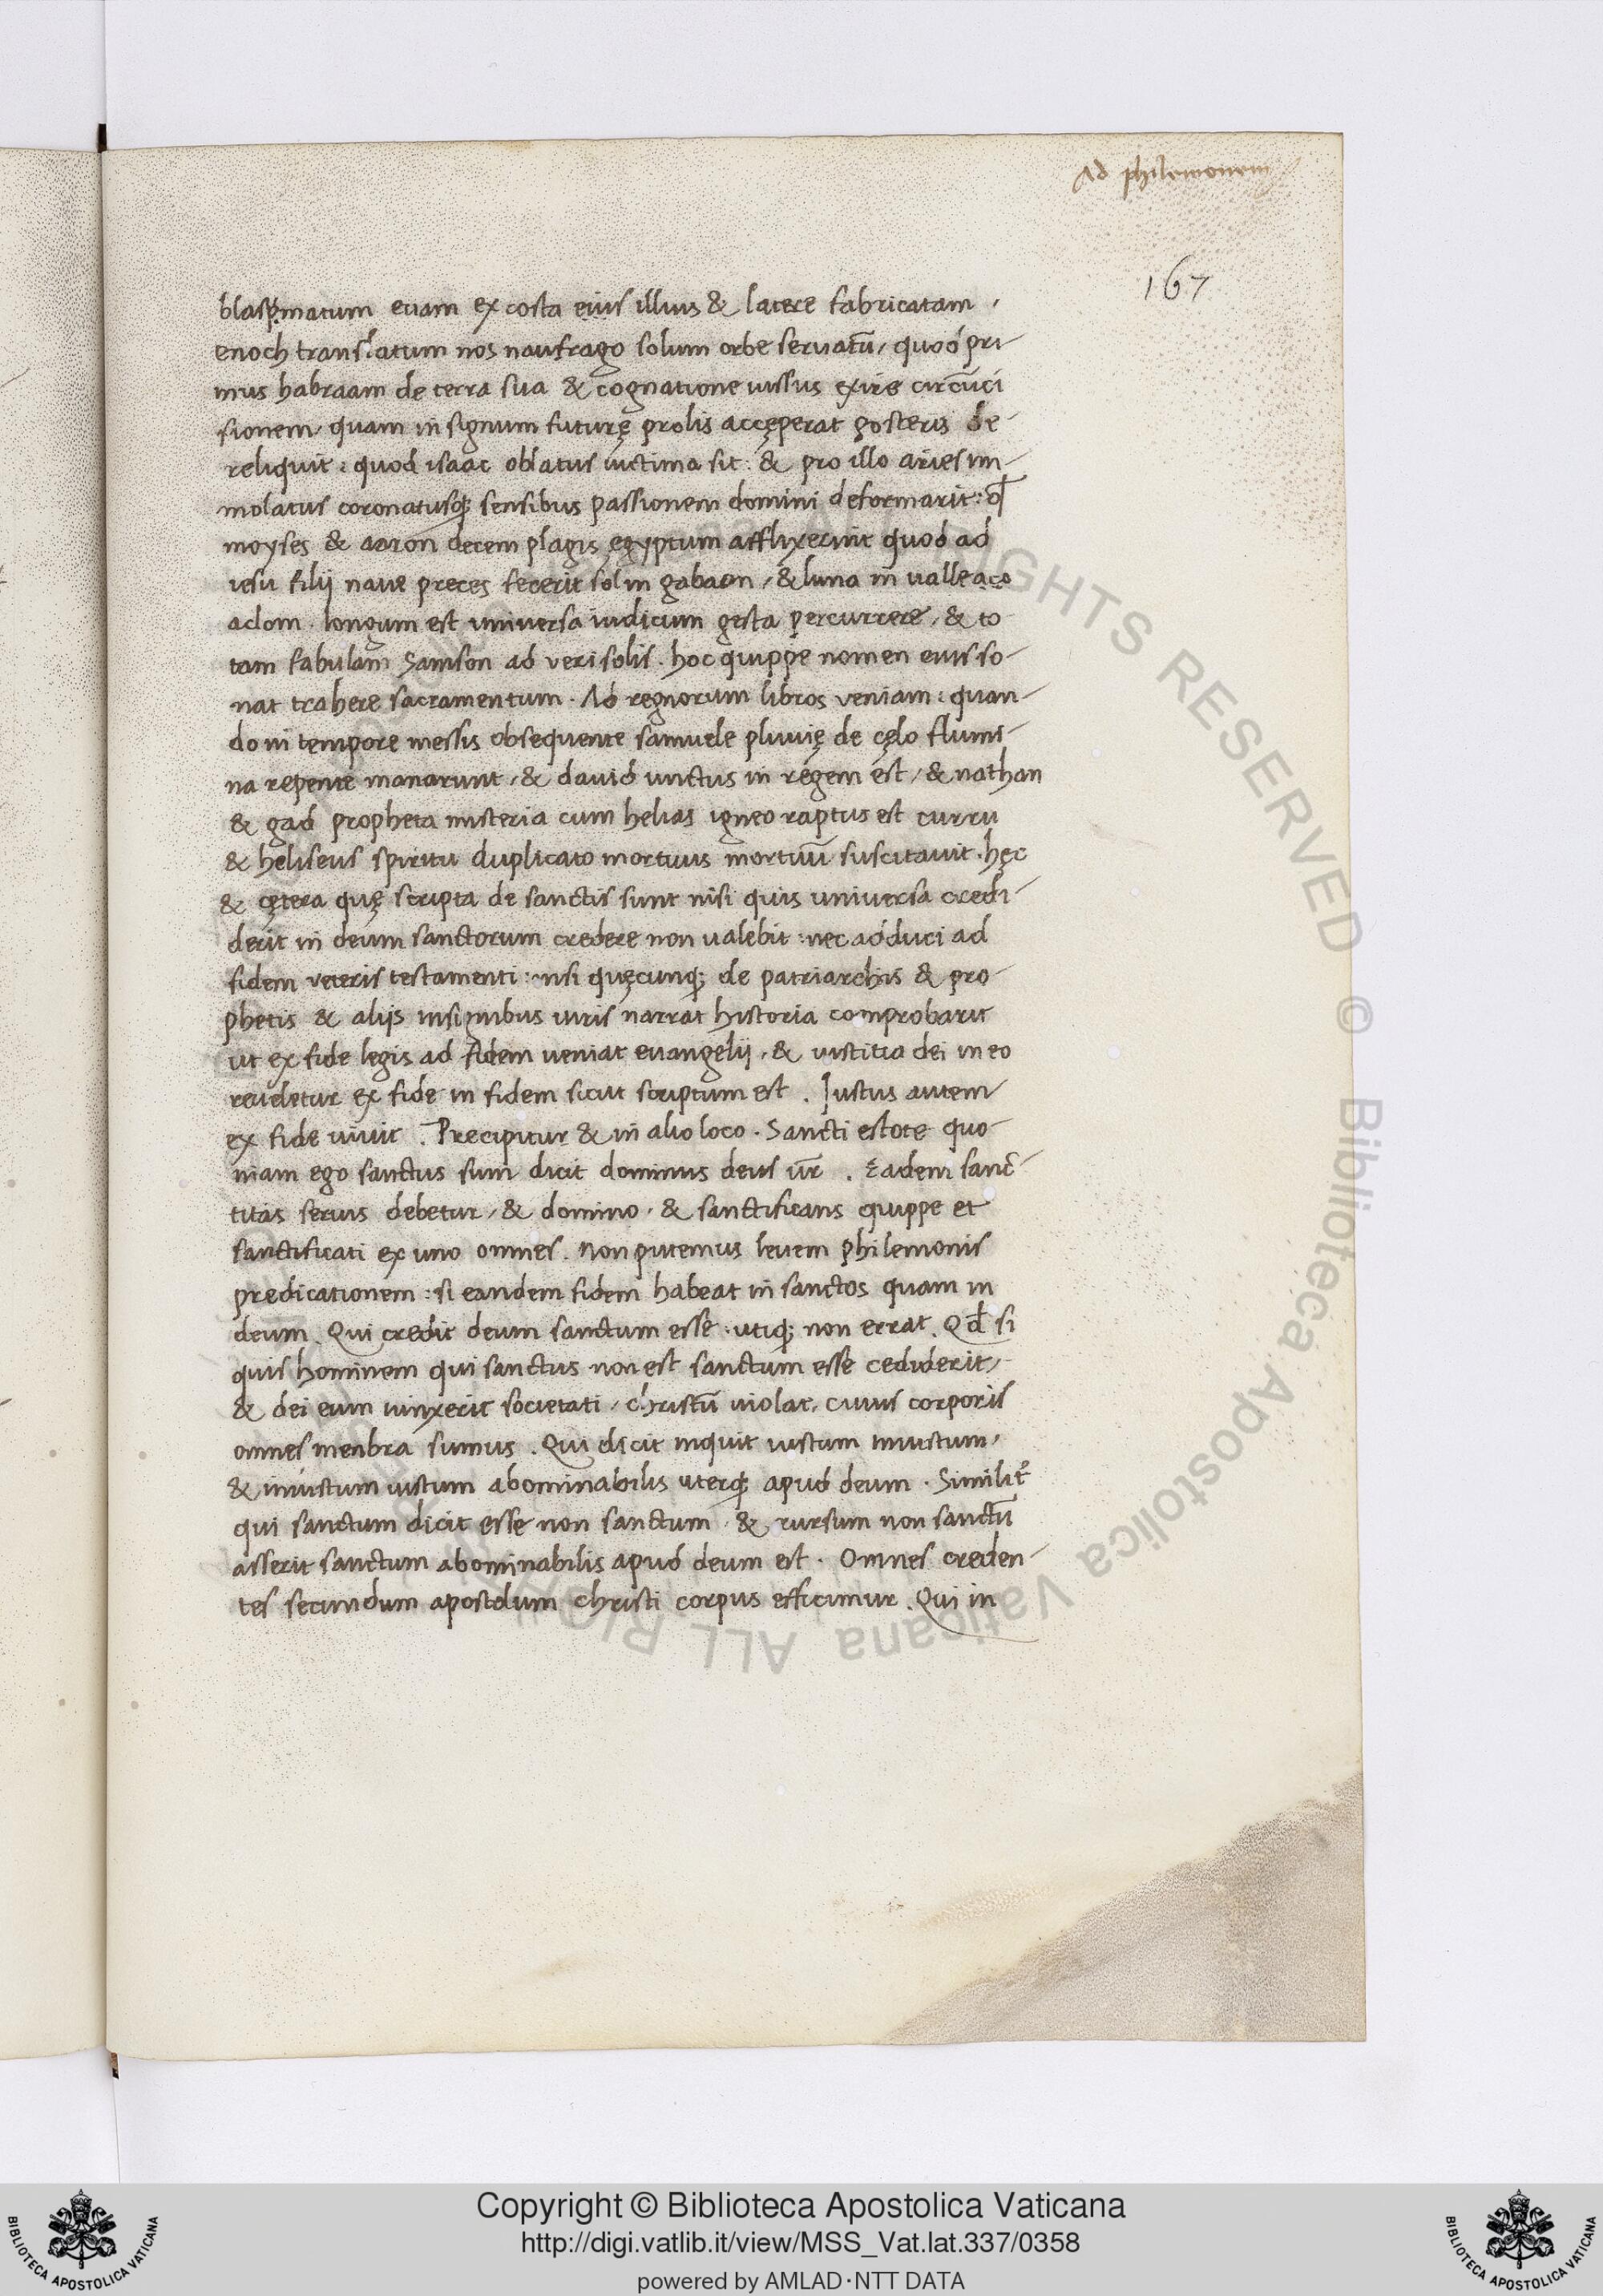 Ad philemonem
167
blaspmatum euam ex costa eius illius & latere fabricatam,
enoch translatum nos naufrago solum orbe seruatū, quod pri-
mus habraam de terra sua & cognatione iussus exire circūci
sionem, quam in signum futurę prolis accęperat posteris de-
reliquit: quod isaac oblatus uictima sit: & pro illo aries im-
molatus coronatusq; sensibus passionem domini deformarit: qđ
moyses & aaron decem plagis ęgyptum afflixerint quod ad
iesu filij naue preces fecerit sol in gabaon, & luna in valle aco
adom. longum est universa iudicum gesta percurrere, & to
tam fabulam Samson ad veri solis. hoc quippe nomen eius so-
nat trahere sacramentum. Ad regnorum libros veniam: quan-
do in tempore messis obsequente samuele pluuię de cęlo flumi-
na repente manarunt, & dauid unctus in regem est, & nathan
& gad propheta misteria cum helias igneo raptus est curru
& heliseus spiritu duplicato mortuus mortuū suscitauit. hęc
& cętera quę scripta de sanctis sunt nisi quis universa credi-
derit in deum sanctorum credere non ualebit: nec adduci ad
fidem veteris testamenti: nisi quęcunq; de patriarchis & pro-
phetis & alijs insignibus uiris narrat historia comprobarit
ut ex fide legis ad fidem ueniat euangelij, & iustitia dei in eo
reueletur ex fide in fidem sicut scriptum est. Iustus autem
ex fide uiuit. Precipitur & in alio loco. Sancti estote quo-
niam ego sanctus sum dicit dominus deus ūr. Eadem sanc-
titas seruis debetur, & domino. & sanctificans quippe et
sanctificati ex uno omnes. non putemus leuem philemonis
predicationem: si eandem fidem habeat in sanctos quam in
deum. Qui credit deum sanctum esse: utiq; non errat. Qđ si
quis hominem qui sanctus non est sanctum esse cediderit,
& dei eum iunxerit societati, christū uiolat, cuius corporis
omnes menbra sumus. Qui dicit inquit iustum iniustum,
& iniustum iustum abominabilis uterq; apud deum. Similit̄
qui sanctum dicit esse non sanctum, & rursum non sanctū
asserit sanctum abominabilis apud deum est. Omnes creden-
tes secundum apostolum christi corpus efficimur. Qui in
ALL RIGHTS RESERVED © Biblioteca Apostolica Vaticana
Copyright © Biblioteca Apostolica Vaticana
http://digi.vatlib.it/view/MSS_Vat.lat.337/0358
powered by AMLAD·NTT DATA
BIBLIOTECA APOSTOLICA VATICANA
BIBLIOTECA APOSTOLICA VATICANA